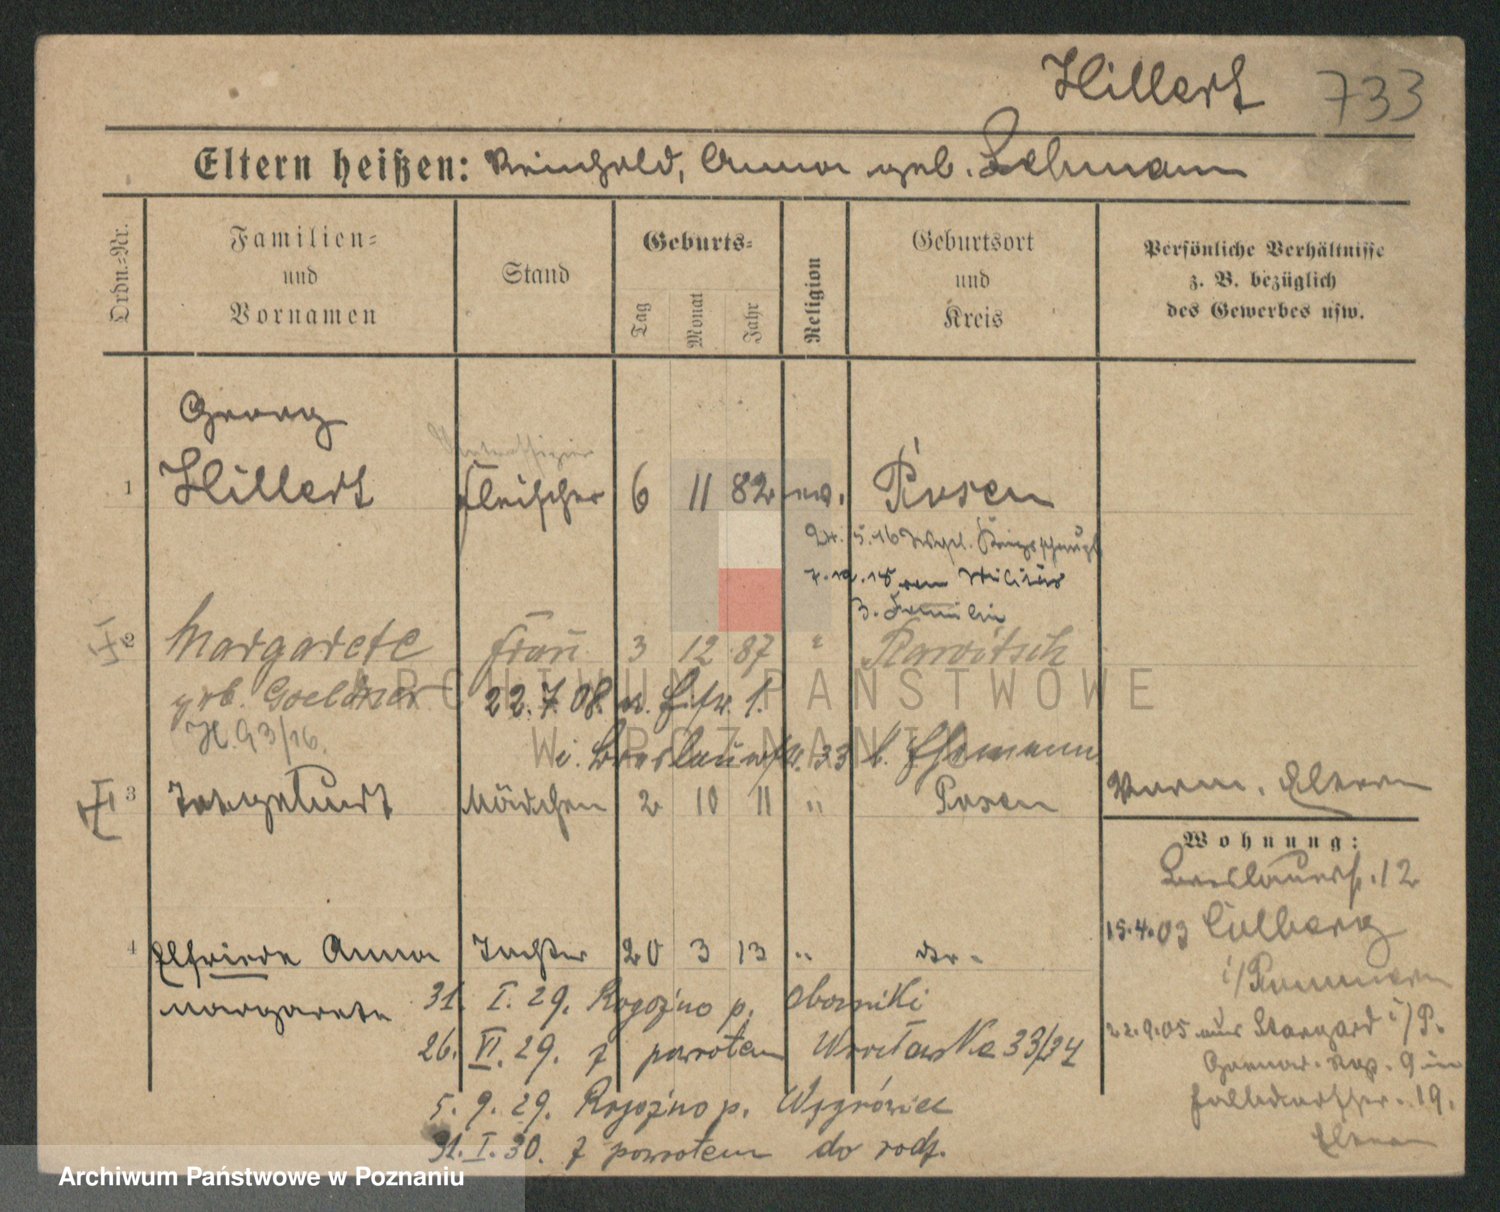 Hillert 733
Eltern heißen: Reinhold, Anna geb. Lehmann
Ordn.-Nr.
Familien-
und
Vornamen
Stand
Geburts-
Tag
Monat
Jahr
Religion
Geburtsort
und
Kreis
Persönliche Verhältnisse
z. B. bezüglich
des Gewerbes usw.
Georg
Unteroffizier
1 Hillert Fleischer 6 11 82 ev. Posen
24.5.16
Militär
z. Familie
2 Margarete Frau 3 12 87 " Rawitsch
geb. Goeldner 22.7.08.
H. 93/16.
i. Breslauerstr. 33 b. Ehmann
3 Totgeburt Mädchen 2 10 11 " Posen
Verm. Eltern
Wohnung:
Breslauerstr. 12
15.4.03 Colberg
i/Pommern
22.9.05 aus Stargard i/P.
9 in
19.
Eltern
4 Elfriede Anna Tochter 20 3 13 " do -
Margarete
31. I. 29. Rogoźno p. Oborniki
26. VI. 29. z powrotem Wrocławska 33/34
5. 9. 29. Rogoźno p. Wągrówiec
31. I. 30. z powrotem do rodz.
ARCHIWUM PAŃSTWOWE
W POZNANIU
Archiwum Państwowe w Poznaniu